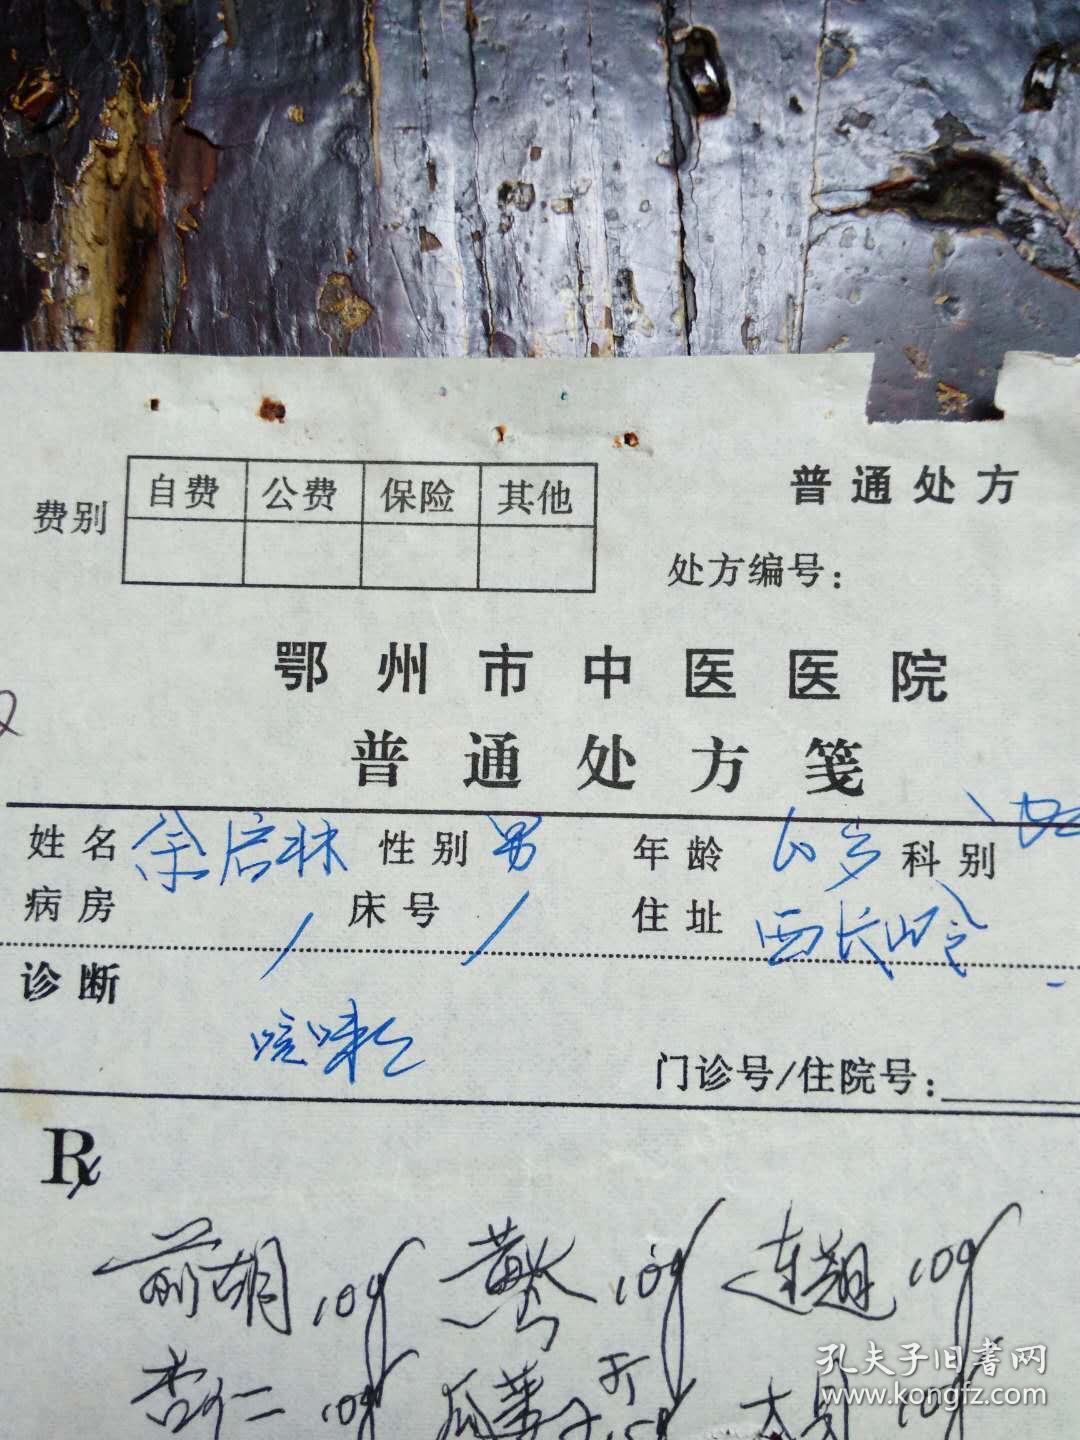 普通处方
费别 自费 公费 保险 其他
处方编号：
鄂州市中医医院
普通处方笺
姓名 余启林 性别 男 年龄 岁 科别
病房 / 床号 / 住址 西长岭
诊断
咳嗽
门诊号/住院号：
R
前胡 10g 黄 10g 连翘 10g
杏仁 10g 瓜蒌子 10g
孔夫子旧书网
www.kongfz.com